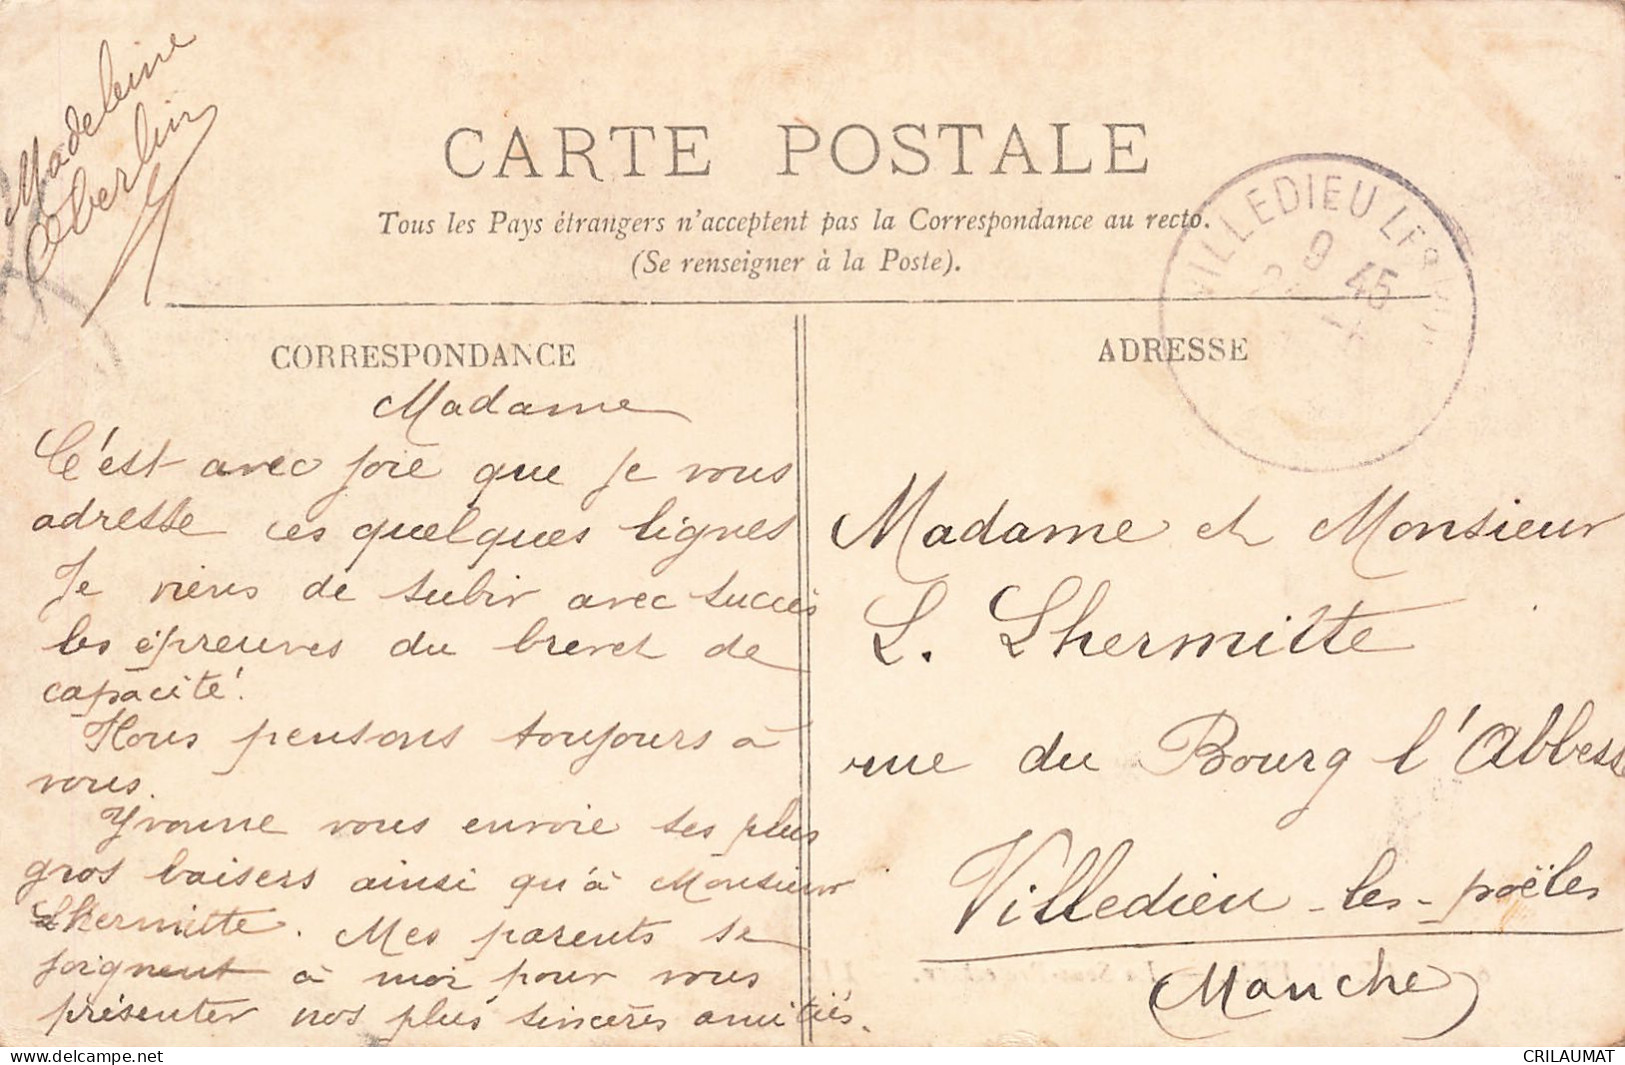 Madeleine
Oberlin
CARTE POSTALE
Tous les Pays étrangers n'acceptent pas la Correspondance au recto.
(Se renseigner à la Poste).
VILLEDIEU LES
9 45
CORRESPONDANCE
Madame
C'est avec joie que je vous
adresse ces quelques lignes
Je viens de subir avec succès
les épreuves du brevet de
capacité.
Nous pensons toujours à
vous.
Yvonne vous envoie ses plus
gros baisers ainsi qu'à Monsieur
Lhermitte. Mes parents se
joignent à moi pour vous
présenter nos plus sincères amitiés.
ADRESSE
Madame et Monsieur
L. Lhermitte
rue du Bourg l'Abbesse
Villedieu-les-poëles
(Manche)
CRILAUMAT